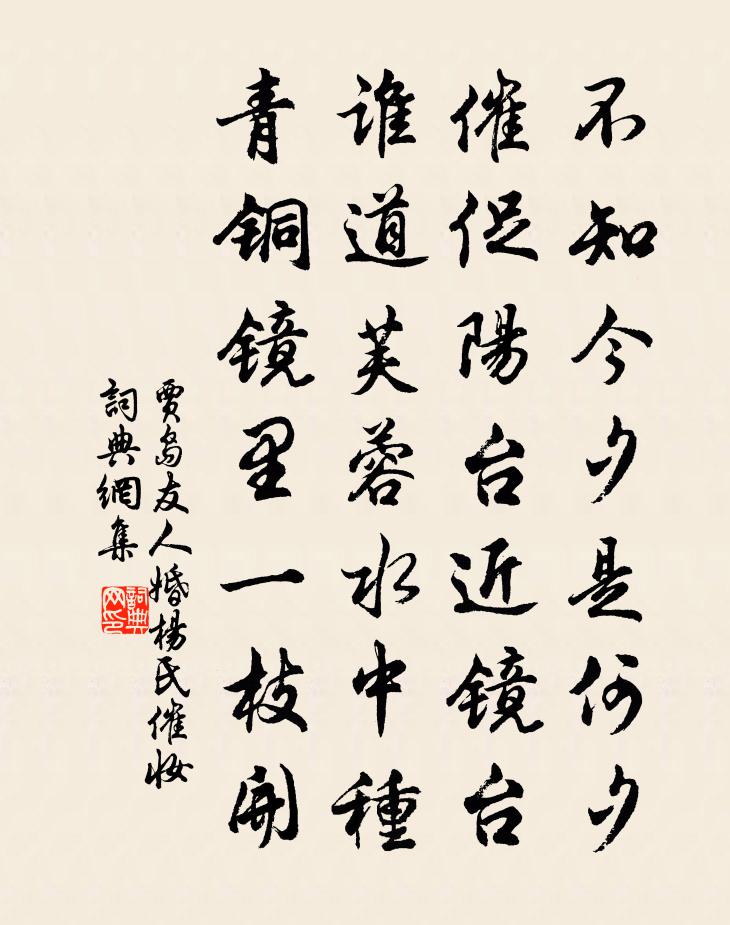 不知今夕是何夕
催促陽台近镜台
谁道芙蓉水中種
青铜镜里一枝開
賈島友人婚楊氏催妝
詞典網集
詞典网印